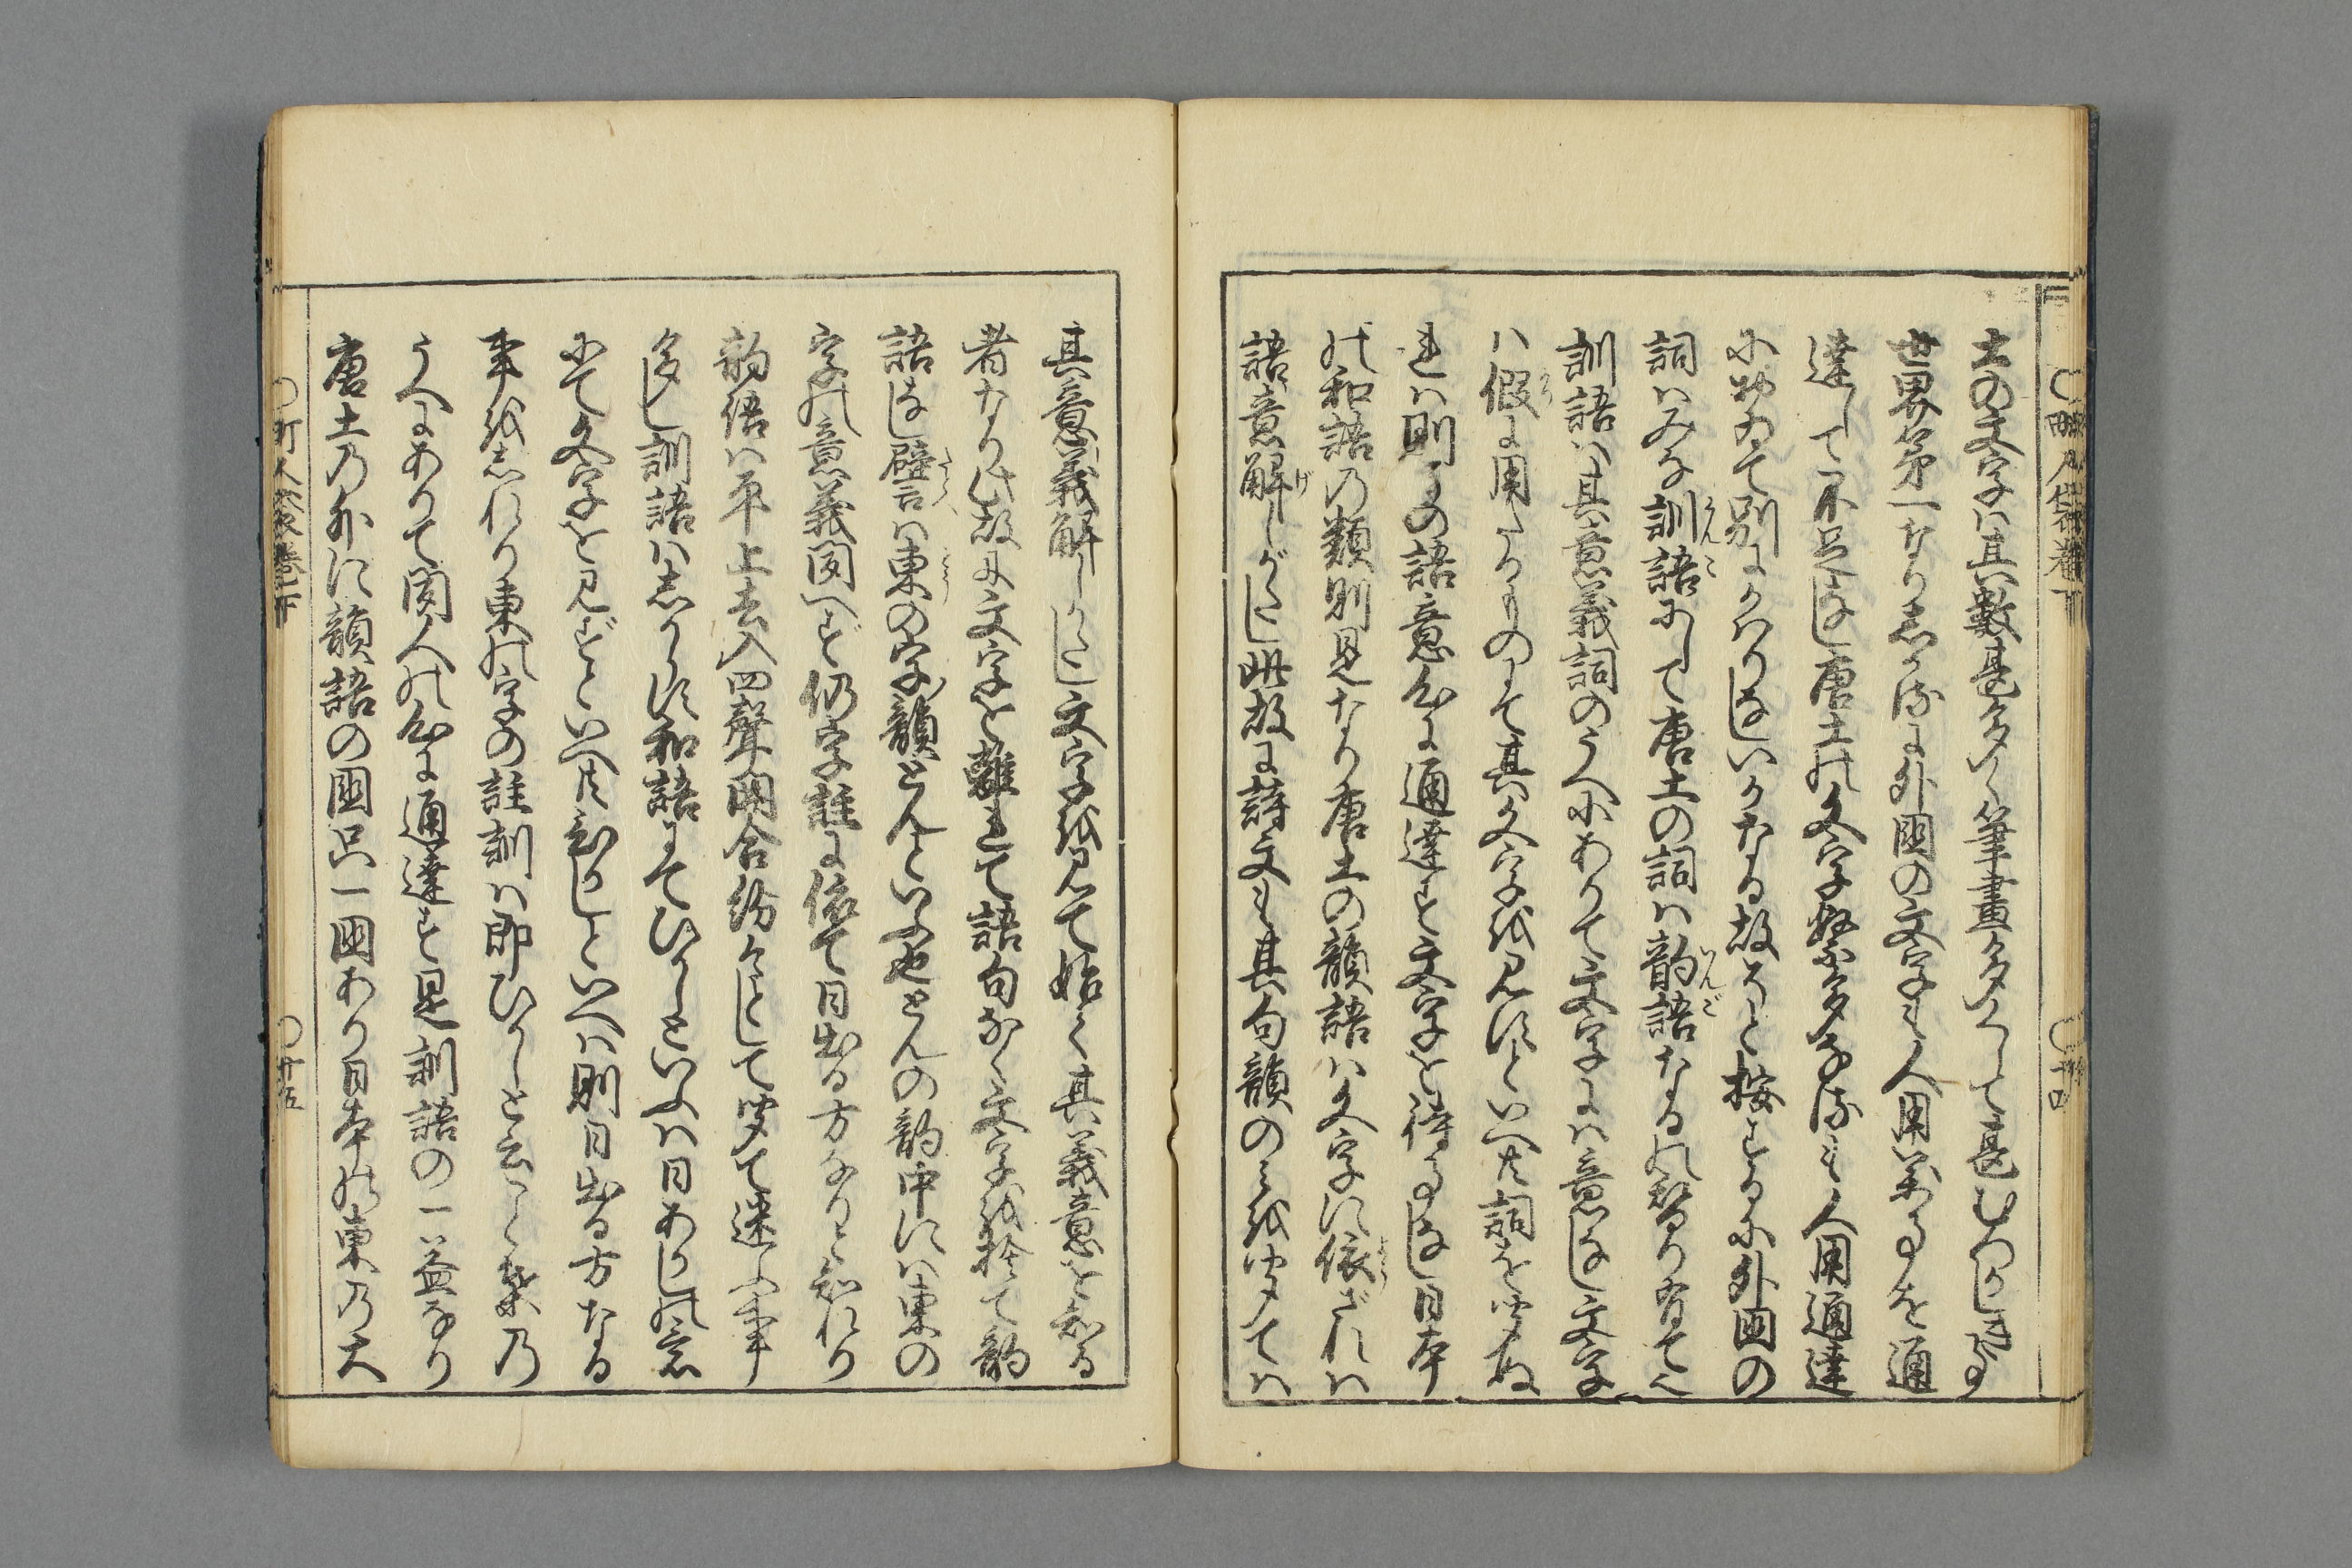 土の文字は其數甚多く筆畫多くして甚むつかしき事
世界第一なり然るに外國の文字も人用萬事を通
達して不足なし唐土の文字繁多なるも人用通達
におゐて別にかはりなしいかなる故そと按するに外國の
詞はみな訓語にして唐土の詞は韵語なるの替り有てや
訓語は其意義詞のうへにありて文字には意なし文字
は假に用たるものにて其文字を見ずといへ共詞を聞ぬ
れは則その語意心に通達す文字を待事なし日本
の和語の類則是なり唐土の韻語は文字に依ざれは
語意解しがたし此故に詩文も其句韻のみを聞ては
其意義解しがたし文字を見て始て其義意を知る
者なり此故に文字を離れて語句なく文字を捨て韵
語なし譬は東の字韻とんといふ也とんの韵中には東の
字の意義聞へず仍字註に依て日出る方なりと知れり
韵語は平上去入四聲開合紛々として聞て迷ふ事
多し訓語はしからず和語にてひかしといふは日あかしの意
にて文字を見ずといへ共ひかしといへは則日出る方なる
事をしれり東の字の註訓は即ひかしと云々是乃
うへにありて聞人の心に通達す是訓語の一益なり
唐土の外に韻語の國只一國あり日本の東の大
○町人袋巻下
○廿五